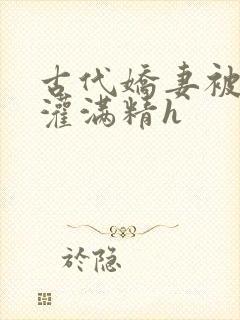 古代嬌妻被
灌满精h
於隐